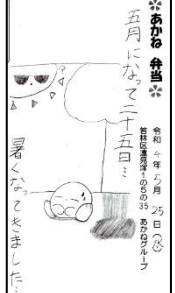 ✽あかね 弁当✽
令和4年5月25日(水)
若林区遠見塚1の5の35 あかねグループ
五月になって二十五日…
暑くなってきました…
?